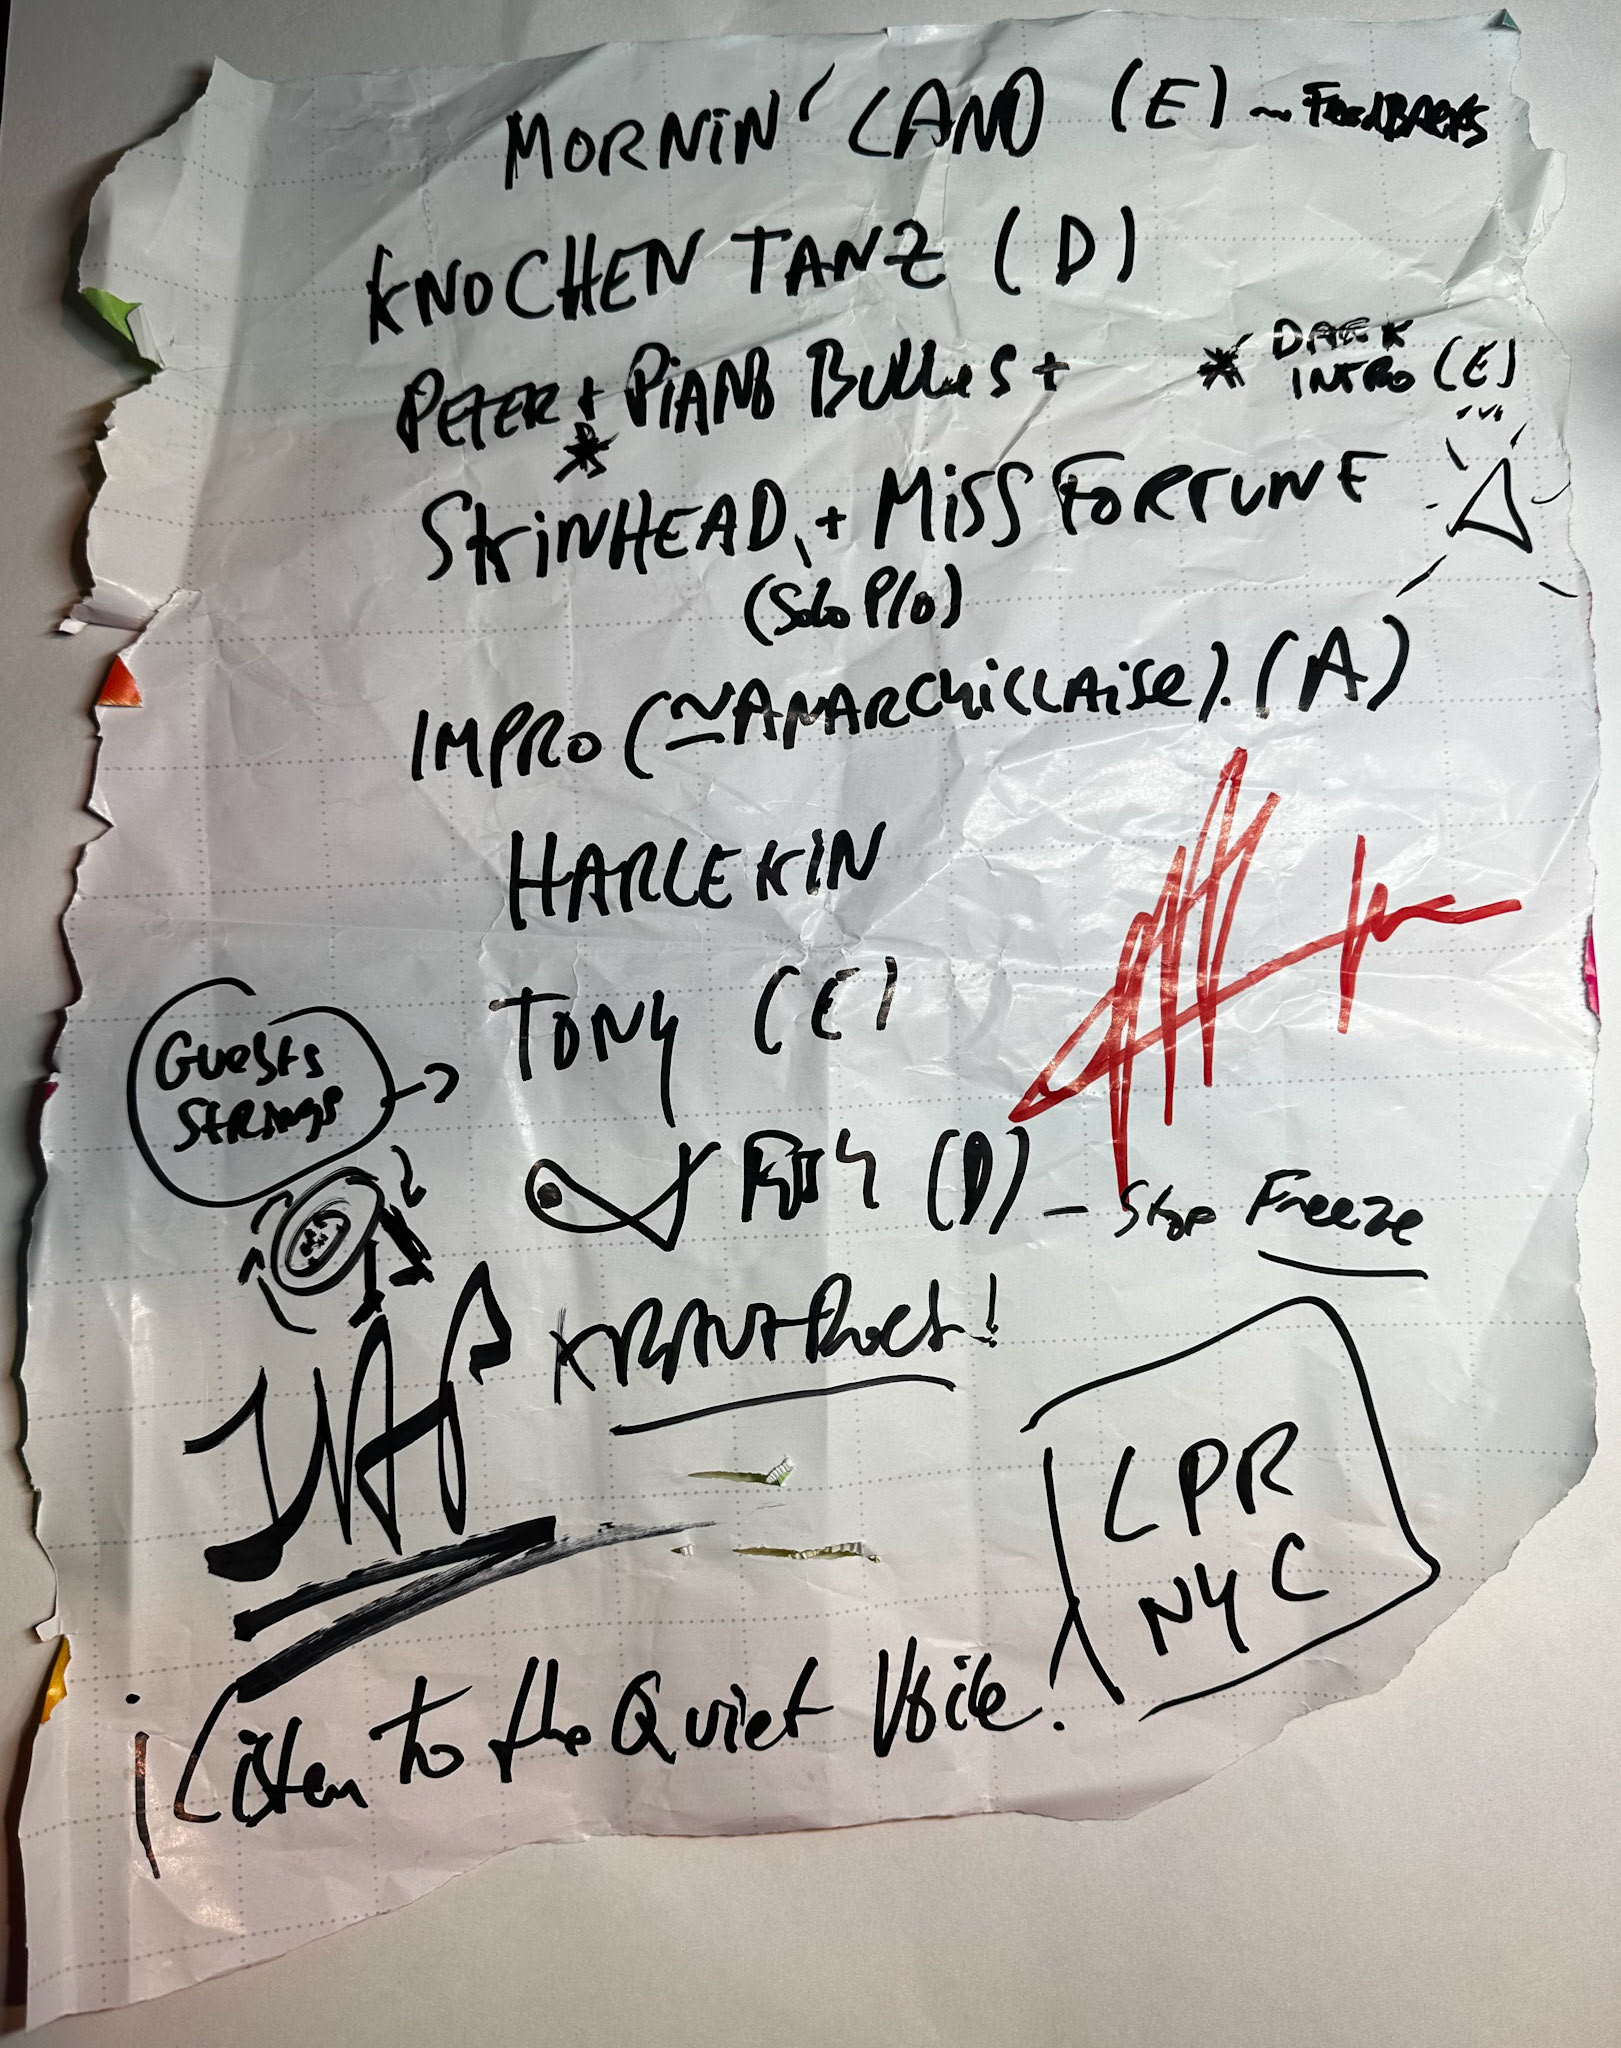 MORNiN' LAND (E) ~ FEEDBACKS
KNOCHEN TANZ (D)
PETER + PiANO BULLES +
* DARK
INTRO (E)
SKiNHEAD, + MiSS FORTUNE
(Solo P/O)
IMPRO (≃ ANARCHiLLAiSe). (A)
HARLEKIN
TONY (E)
Guests
Strings
(D) - Stop Freeze
KRAUTRock!
LPR
NYC
¡Listen to the Quiet Voice.